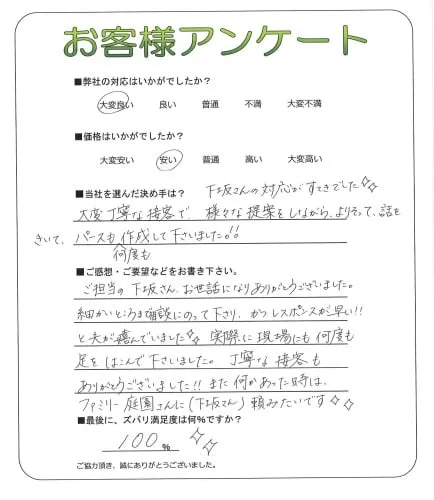 お客様アンケート
■弊社の対応はいかがでしたか？
大変良い 良い 普通 不満 大変不満
■価格はいかがでしたか？
大変安い 安い 普通 高い 大変高い
■当社を選んだ決め手は？ 下坂さんの対応がすてきでした
大変丁寧な接客で 様々な提案をしながら、よりそって、話を
きいて、パースも作成して下さいました!!
何度も
■ご感想・ご要望などをお書き下さい。
ご担当の下坂さん、お世話になりありがとうございました。
細かいところまで相談にのって下さり、かつレスポンスが早い!!
と夫が喜んでいました 実際に現場にも何度も
足をはこんで下さいました。丁寧な接客も
ありがとうございました!! また何かあった時は、
ファミリー庭園さんに(下坂さん)頼みたいです
■最後に、ズバリ満足度は何％ですか？
100％
ご協力頂き、誠にありがとうございました。